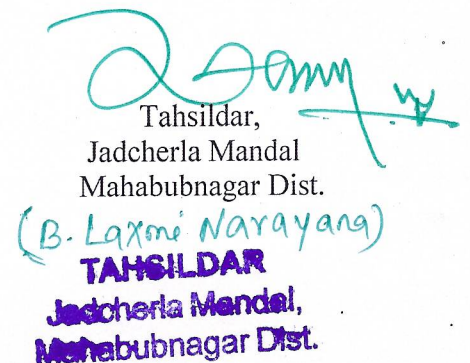 Tahsildar,
Jadcherla Mandal
Mahabubnagar Dist.
(B. Laxmi Narayana)
TAHSILDAR
Jadcherla Mandal,
Mahabubnagar Dist.